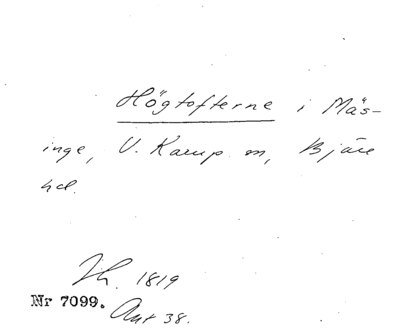 Högtofterne i Mäs-
inge, V. Karup sn, Bjäre
hd.
Jh. 1819
Nr 7099.
Ant 38.